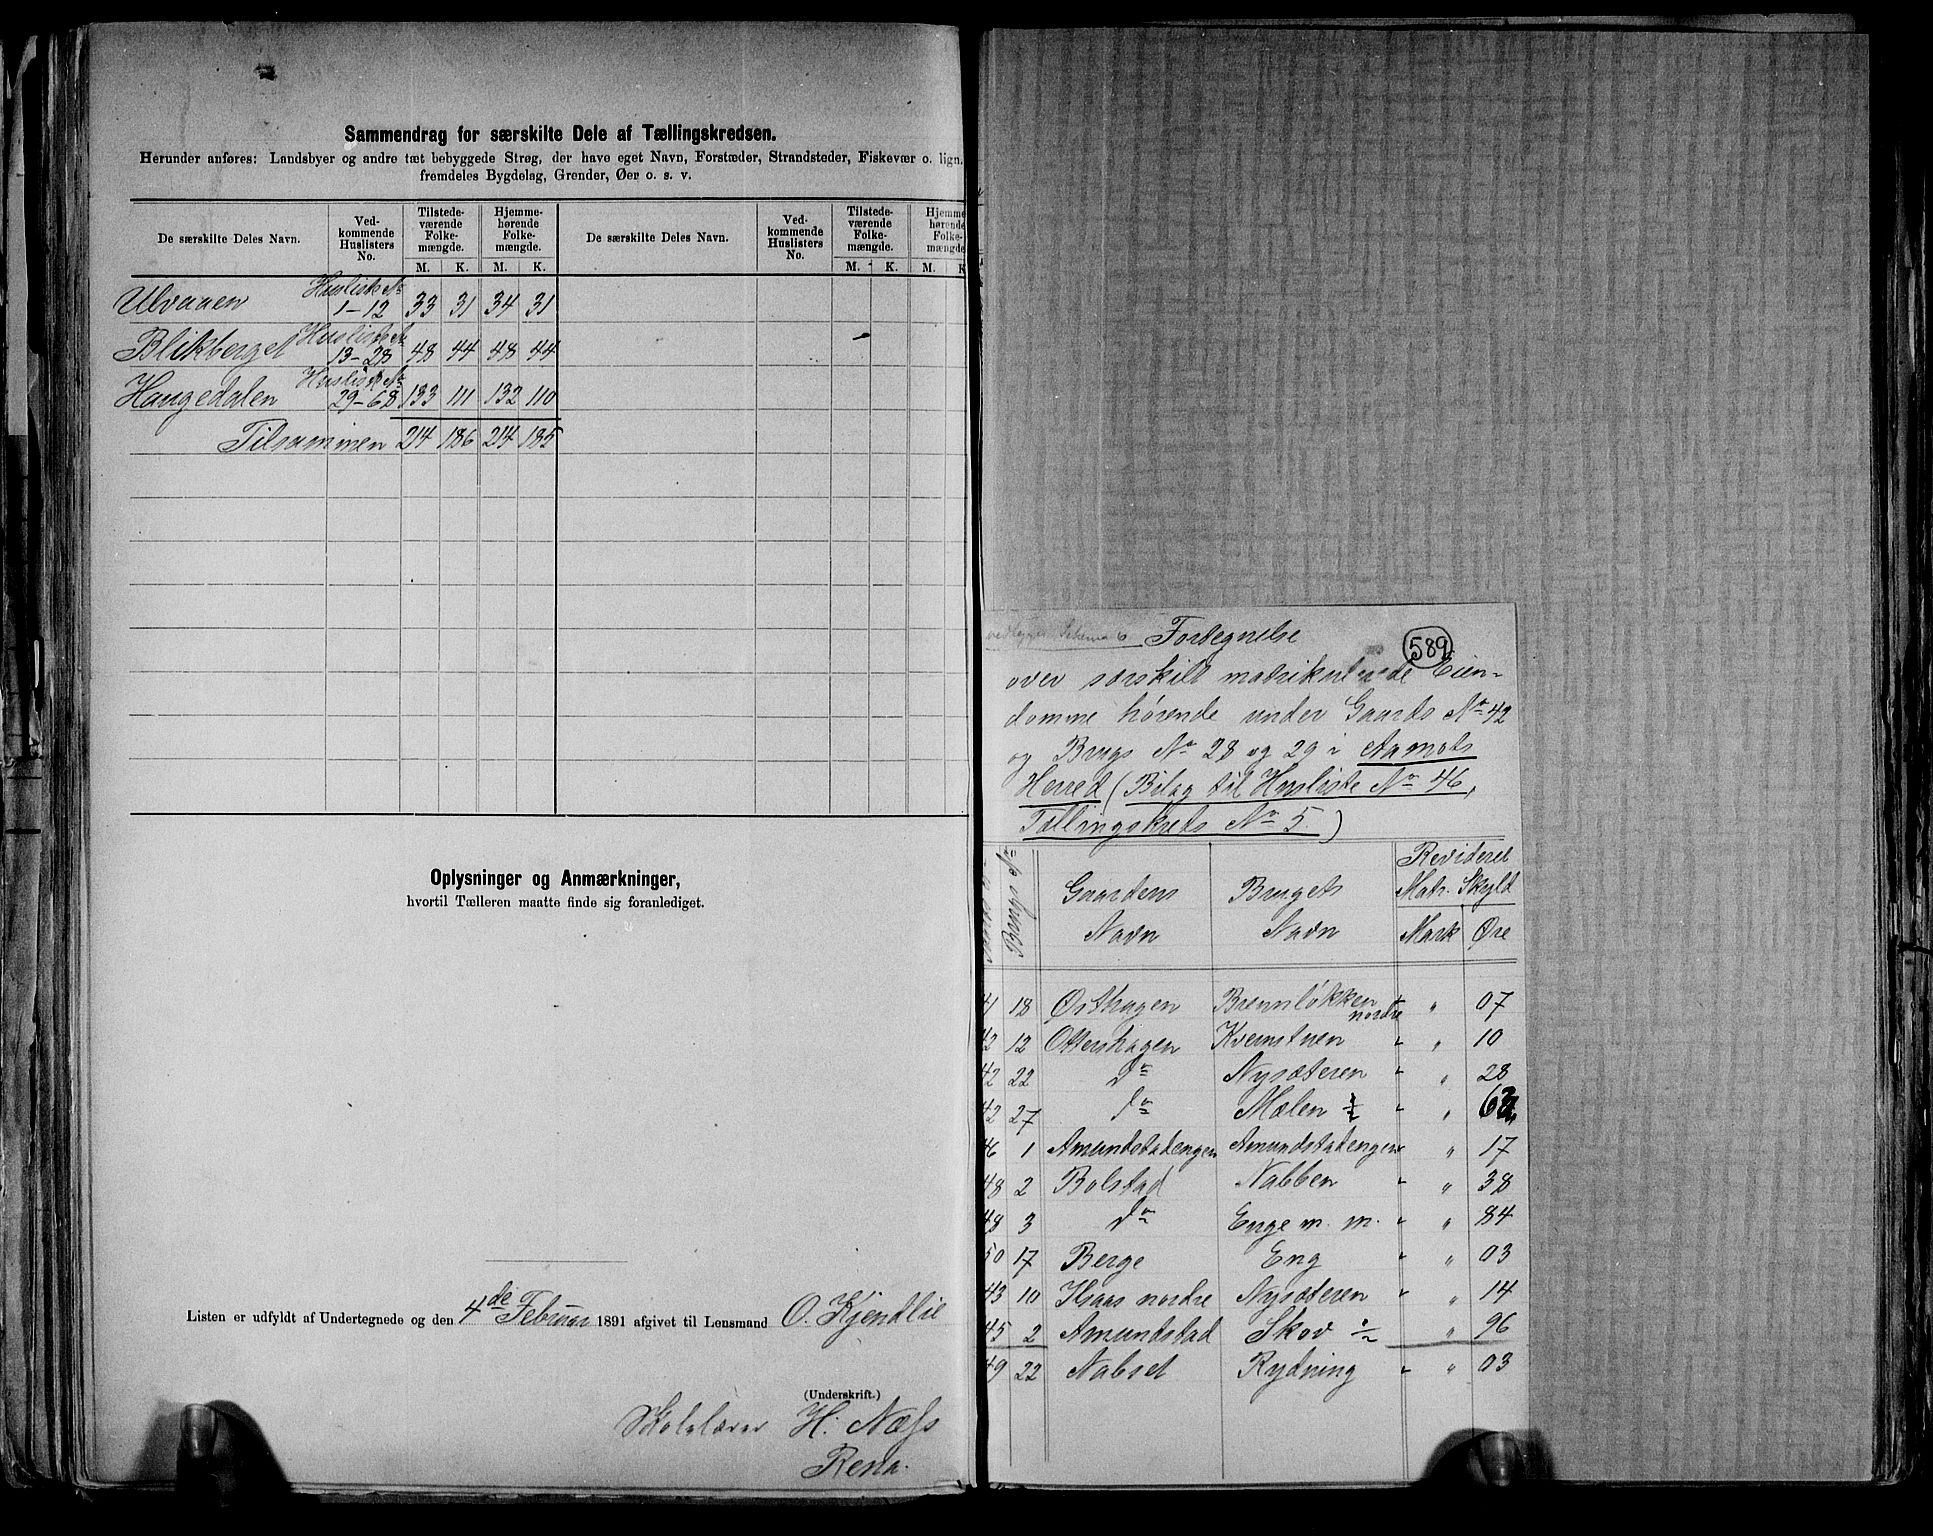 Sammendrag for særskilte Dele af Tællingskredsen.
Herunder anføres: Landsbyer og andre tæt bebyggede Strøg, der have eget Navn, Forstæder, Strandsteder, Fiskevær o. lign.
fremdeles Bygdelag, Grender, Øer o. s. v.
De særskilte Deles Navn. Ved-kommende Huslisters No. Tilstede-værende Folke-mængde. Hjemme-hørende Folke-mængde. De særskilte Deles Navn. Ved-kommende Huslisters No. Tilstede-værende Folke-mængde. Hjemme-hørende Folke-mængde
M. K. M. K. M. K. M. K
Ulvaaen Husliste No 1-12 33 31 34 31
Blikberget Husliste No 13-28 48 44 48 44
Haugedalen Husliste No 29-68 133 111 132 110
Tilsammen 214 186 214 185
Oplysninger og Anmærkninger,
hvortil Tælleren maatte finde sig foranlediget.
Listen er udfyldt af Undertegnede og den 4de Februar 1891 afgivet til Lensmand O. Kjendlie
(Underskrift.)
Skolelærer H. Næss
Rena.
vedlægges Schema 6 Fortegnelse 589
over særskilt matrikulerede Eien-
domme hørende under Gaards No 42
og Brugs No 28 og 29 i Aamots
Herred (Bilag til Husliste No 46,
Tællingskreds No 5.)
Brugs No Gaardens Navn Brugets Navn Revideret Matr. Skyld
Mark Øre
41 18 Østhagen Brennløkken nordre " 07
42 12 Ottershagen Kvernstuen " 10
42 22 do Nysæteren " 28
42 27 do Mælen ½ "
46 1 Amundstadengen Amundstadengen " 17
48 2 Bolstad Nabben " 38
48 3 do Enge m. m. " 84
50 17 Berge Eng " 03
43 10 Ilsaas nordre Nysæteren " 14
45 2 Amundstad Skov ½ " 96
49 22 Nabset Rydning " 03